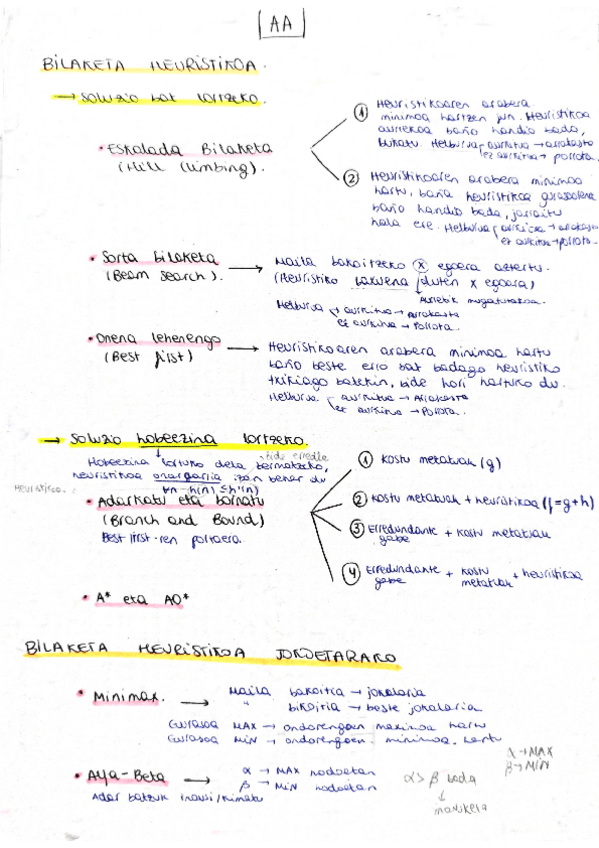 AA
BILAKETA HEURISTIKOA.
→ SOLUZIO bat lortzeko.
• Eskalada Bilaketa
(Hill Climbing).
① Heuristikoaren arabera
minimoa hartzen jun. Heuristikoa
aurrekoa baño handio bada,
bukatu. Helburua aurkitua → arrakasta
ez aurkitua → porrota.
② Heuristikoaren arabera minimoa
hartu, baña heuristikoa gurasoarena
baño handio bada, jarraitu
hala ere. Helburua aurkitua → arrakasta
ez aurkitua → porrota.
• Sorta bilaketa
(Beam Search).
→ Maila bakoitzeko Ⓧ egoera aztertu.
(Heuristiko baxuena duten X egoera)
Aurretik mugatutakoa.
Helburua aurkitua → Arrakasta
ez aurkitua → Porrota.
• Onena lehenengo
(Best first)
→ Heuristikoaren arabera minimoa hartu
baño beste erro bat badago heuristiko
txikiago batekin, bide hori hartuko du.
Helburua aurkitua → Arrakasta
ez aurkitua → Porrota.
→ SOLUZIO hobeezina lortzeko.
Hobeezina lortuko dela bermatzeko,
heuristikoa onargarria izan behar du
∀n h(n) ≤ h*(n)
Heuristikoa.
• Adarkatu eta bornatu
(Branch and Bound)
Best first-ren portaera.
① Kostu metatuak (g)
② Kostu metatuak + heuristikoa (f=g+h)
③ Erredundante gabe + kostu metatuak
④ Erredundante gabe + kostu metatuak + heuristikoa
• A* eta AO*
BILAKETA HEURISTIKOA JOKOETARAKO
• Minimax.
→ Maila bakoitia → jokalaria
" bikoitia → beste jokalaria
Gurasoa MAX → ondorengoen maximoa hartu
Gurasoa MIN → ondorengoen minimoa hartu
• Alfa-Beta
Adar batzuk inausi/kimatu
→ α → MAX nodoetan
β → MIN nodoetan
α > β bada
↓
inausketa
α → MAX
β → MIN